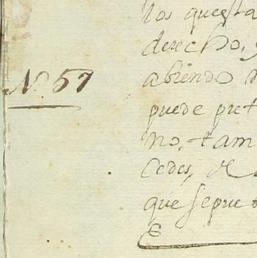 los questa
derecho, y
Nº. 57
abiendo
puede pret
no, tam
Cedes, de
que se pue